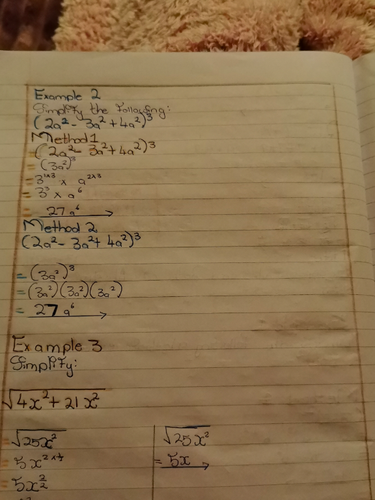 Example 2
Simplify the following:
(2a² - 3a² + 4a²)³
Method 1
(2a² - 3a² + 4a²)³
= (3a²)³
= 3¹ˣ³ x a²ˣ³
= 3³ x a⁶
= 27a⁶
Method 2
(2a² - 3a² + 4a²)³
= (3a²)³
= (3a²)(3a²)(3a²)
= 27a⁶
Example 3
Simplify:
√4x² + 21x²
√25x²
= 5x
√25x²
= 5x